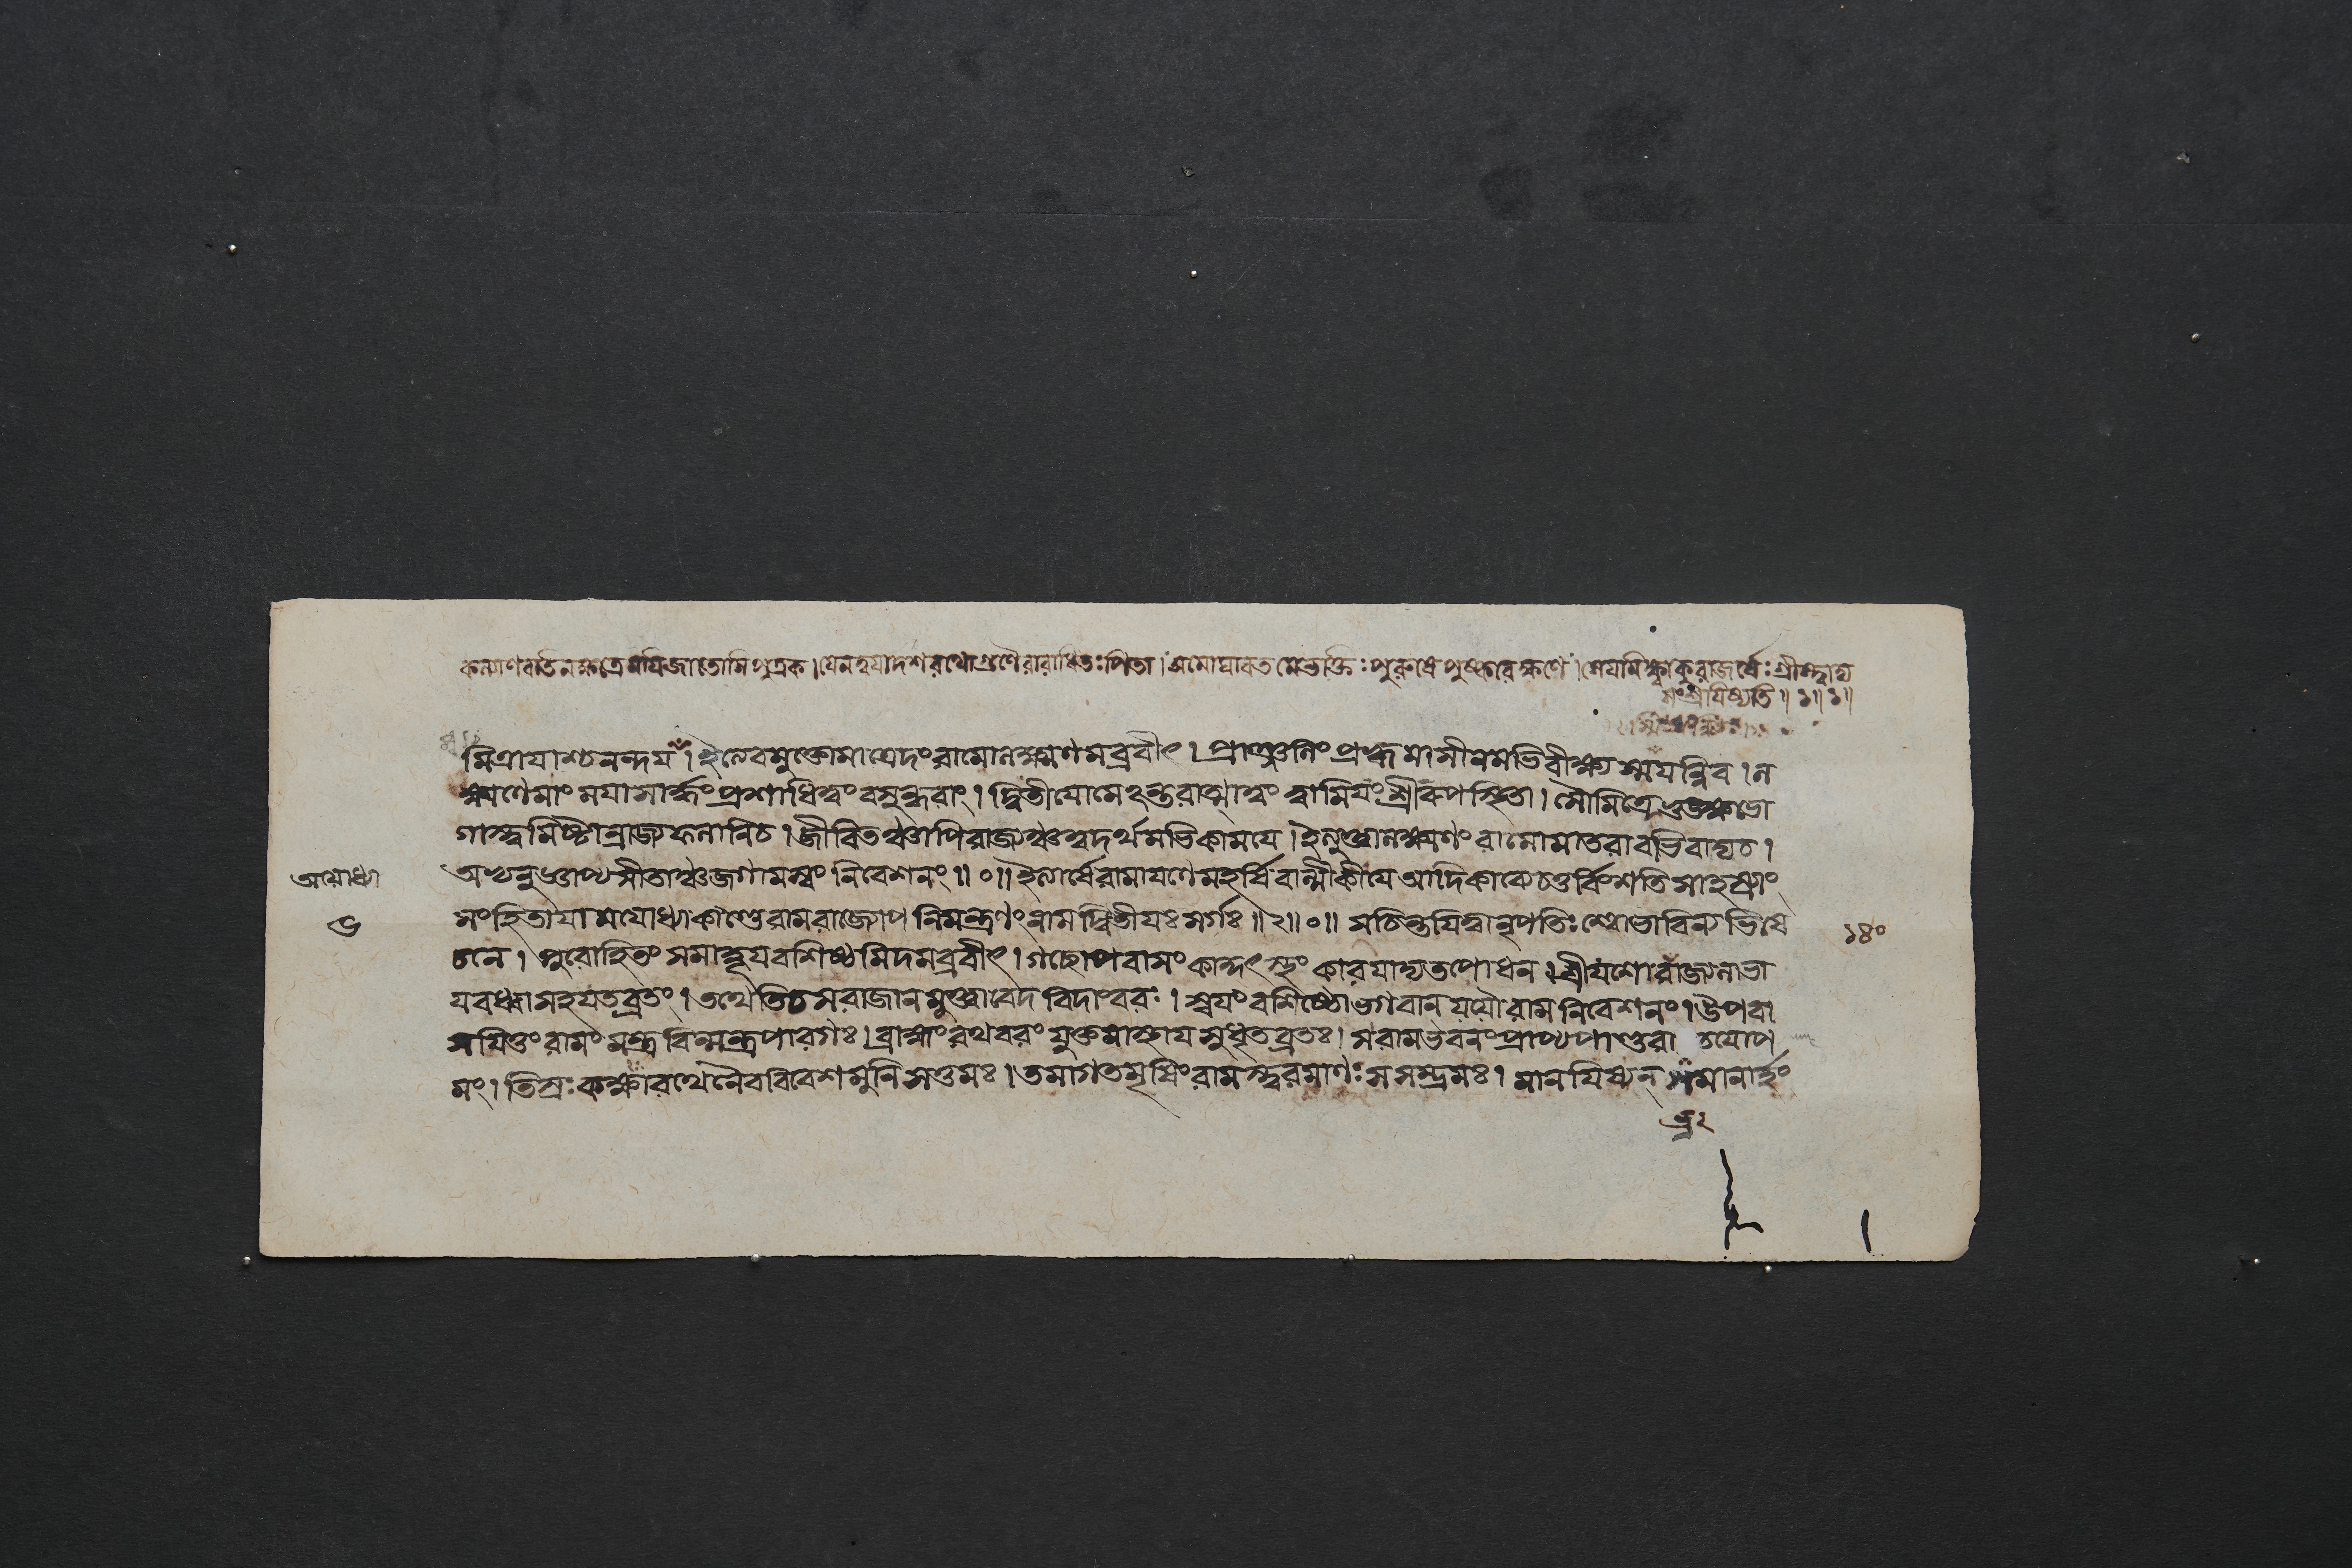 কল্যাণবতনক্ষত্রেময়িজাতোসিপুত্রক।যেনত্বয়াদশরথোগুণৈরারাধিতঃপিতা।অমোঘাবতমেভক্তিঃপুরুষেপুষ্করেক্ষণে।সেয়মিক্ষ্বাকুরাজর্ষেঃশ্রীস্ত্বাদ্য
সংশ্রয়িষ্যতি॥১॥১॥
মিত্রায়াশ্চনন্দয়।ইত্যেবমুক্তোমাত্রেদংরামোলক্ষ্মণমব্রবীৎ।প্রাঞ্জলিংপ্রহ্বমাসীনমভিবীক্ষ্যস্ময়ন্নিব।ল
ক্ষ্মণেমাংময়াসার্দ্ধংপ্রশাধিত্বংবসুন্ধরাং।দ্বিতীয়োমেঽন্তরাত্মাত্বংত্বামিয়ংশ্রীরুপস্থিতা।সৌমিত্রেভুঙ্ক্ষ্বভো
গাস্ত্বমিষ্টান্রাজ্যফলানিচ।জীবিতঞ্চাপিরাজ্যঞ্চত্বদর্থমভিকাময়ে।ইত্যুক্ত্বালক্ষ্মণংরামোমাতরাবভিবাদ্যচ।
অভ্যনুজ্ঞাপ্যসীতাঞ্চজগামস্বংনিবেশনং॥০॥ইত্যার্ষেরামায়ণেমহর্ষিবাল্মীকীয়েআদিকাব্যেচতুর্বিংশতিসাহস্র্যাং
অযোধ্যা
সংহিতায়ামযোধ্যাকাণ্ডেরামরাজ্যোপনিমন্ত্রণংনামদ্বিতীয়ঃসর্গঃ॥২॥০॥সচিন্তয়িত্বানৃপতিঃশ্বোভাবিন্যভিষে
৬
১৪০
চনে।পুরোহিতংসমাহূয়বশিষ্ঠমিদমব্রবীৎ।গচ্ছোপবাসংকাকুৎস্থংকারয়াদ্যতপোধন।শ্রীযশোরাজ্যলাভা
য়বধ্বাসহযতব্রতং।তথেতিচসরাজানমুক্ত্বাবেদবিদাংবরঃ।স্বয়ংবশিষ্ঠোভগবান্যযৌরামনিবেশনং।উপবা
সয়িতুংরামংমন্ত্রবিন্মন্ত্রপারগঃ।ব্রাহ্মংরথবরংযুক্তমাস্থায়সুধৃতব্রতঃ।সরামভবনংপ্রাপ্যপাণ্ডুরা
মং।তিস্রঃকক্ষ্যারথেনৈববিবেশমুনিসত্তমঃ।তমাগতমৃষিংরামস্ত্বরমাণঃসসম্ভ্রমঃ।মানয়িষ্যন্সমানার্হং